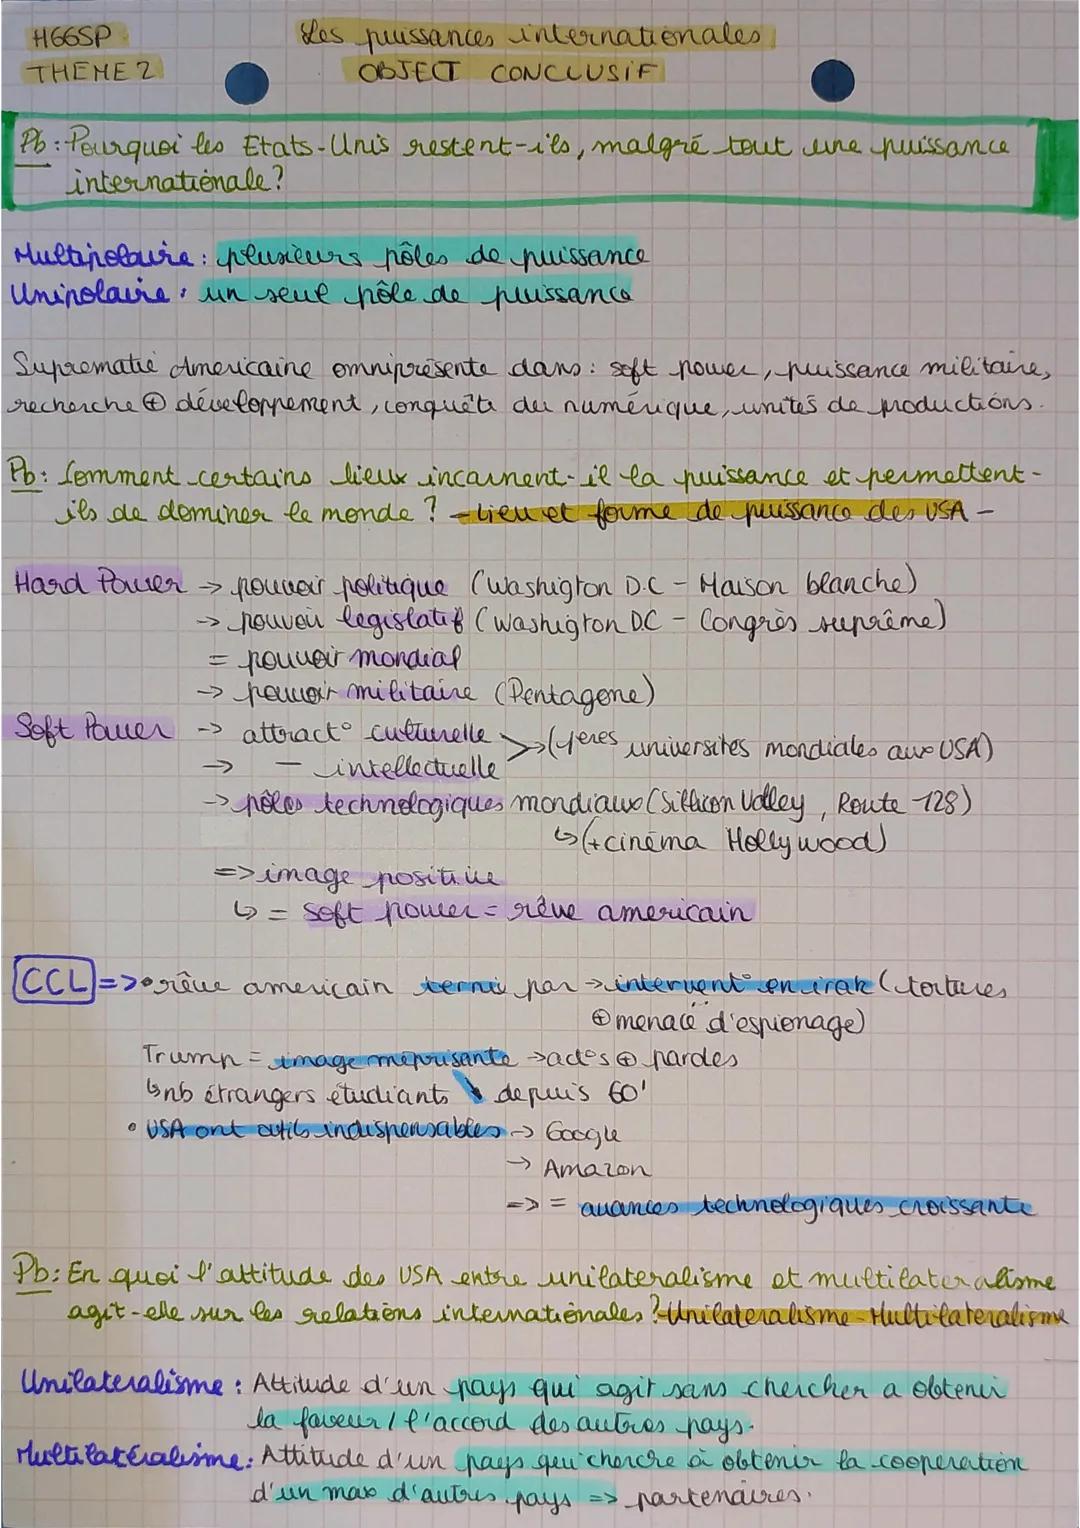 HGGSP
THEME 2
Les puissances internationales
OBJECT CONCLUSIF
Pb : Pourquoi les Etats-Unis restent-ils, malgré tout une puissance
internationale ?
Multipolaire : plusieurs pôles de puissance
Unipolaire : un seul pôle de puissance
Suprematie Americaine omniprésente dans : soft power, puissance militaire,
recherche ⊕ développement, conquête du numérique, unités de productions.
Pb : Comment certains lieux incarnent-il la puissance et permettent-
ils de dominer le monde ? - Lieu et forme de puissance des USA -
Hard Power → pouvoir politique (Washigton D.C - Maison blanche)
→ pouvoir legislatif (Washigton DC - Congrès suprême)
= pouvoir mondial
→ pouvoir militaire (Pentagone)
Soft Power → attract° culturelle
→ — intellectuelle
> → (1eres universités mondiales aux USA)
→ pôles technologiques mondiaux (Sillicon Valley, Route 128)
↳ (+ cinéma Hollywood)
=> image positive
↳ = soft power = rêve americain
CCL => • rêve americain terni par → intervent° en irak (tortures
⊕ menace d'espionage)
Trump = image méprisante → act°s ⊕ pardes
↳ nb étrangers étudiants ↘ depuis 60'
• USA ont outils indispensables → Google
→ Amazon
=> = avances technologiques croissante
Pb : En quoi l'attitude des USA entre unilateralisme et multilateralisme
agit-elle sur les relations internationales ? - Unilateralisme - Multilateralisme
Unilateralisme : Attitude d'un pays qui agit sans chercher a obtenir
la faveur / l'accord des autres pays.
Multilatéralisme : Attitude d'un pays qui cherche à obtenir la cooperation
d'un max d'autres pays => partenaires.